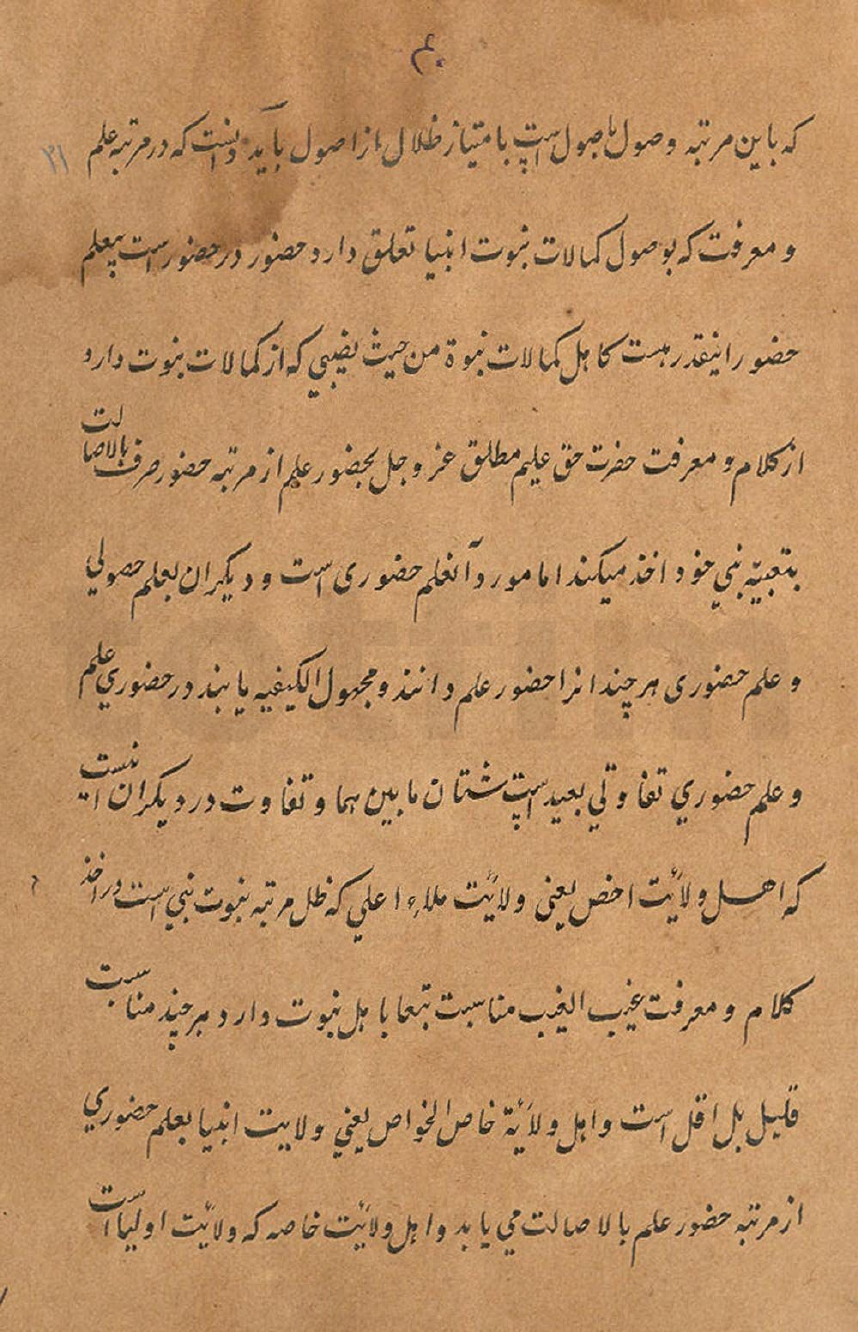 ۴۰
۳۱
که باین مرتبه وصول باصول است بامتیاز ظلال از اصول باید دانست که در مرتبه علم
و معرفت که بوصول کمالات نبوت انبیا تعلق دارد حضور در حضور است بعلم
حضور اینقدر هست کاهل کمالات نبوة من حیث نصیبي که از کمالات نبوت دارد
از کلام و معرفت حضرت حق علیم مطلق عز و جل بحضور علم از مرتبه حضور صرف بالاصالت
بتبعیه نبي خود اخذ میکند اما مورد آنعلم حضوری است و دیکران بعلم حصولي
و علم حضوری هرچند انرا حضور علم دانند و مجهول الکیفیه یابند در حضوري علم
و علم حضوري تفاوتي بعید است شتان ما بین هما و تفاوت در دیکران نیست
که اهل ولایت اخص یعنی ولایت ملاء اعلي که ظل مرتبه نبوت نبي است در اخذ
کلام و معرفت غیب الغیب مناسبت تبعا باهل نبوت دارد هرچند مناسبت
قلیل بل اقل است و اهل ولایة خاص الخواص یعني ولایت انبیا بعلم حضوري
از مرتبه حضور علم بالاصالت مي یابد و اهل ولایت خاصه که ولایت اولیا است